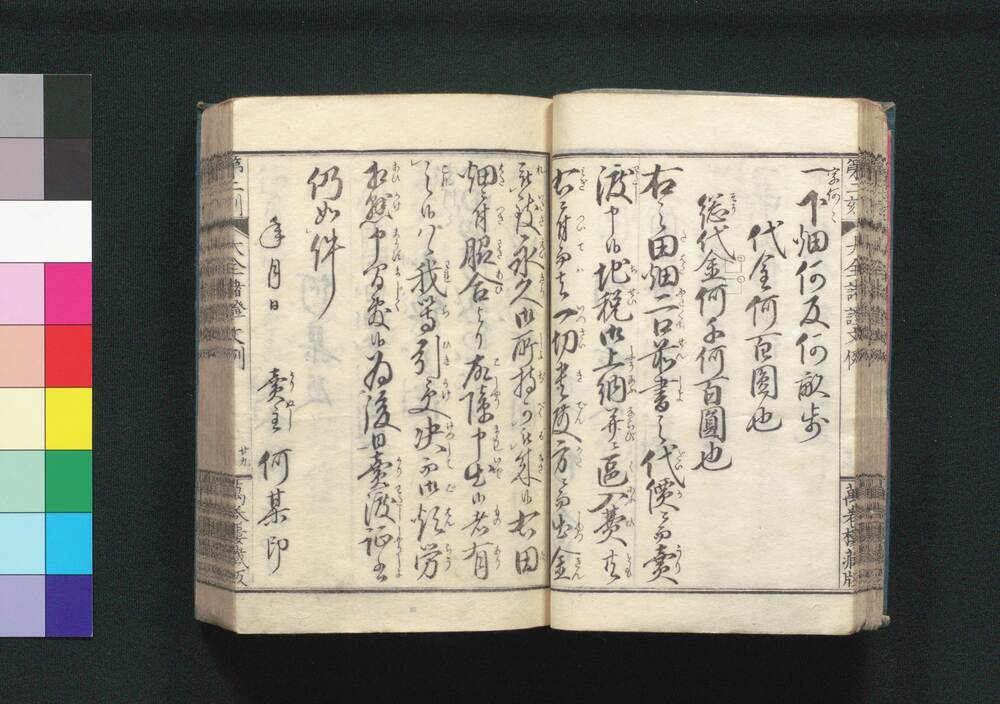 字何々
一下畑何反何畝歩
代金何百圓也
総代金何千何百圓也
右之田畑二口前書之代價ニ而賣
渡申候地税御上納并ニ區入費共
右ニ付而者一切貴殿方ニ而出金
永久御所持可被成候右田
畑ニ付服合より故障申出候者有
之候ハヾ我等引受決而御煩労
相懸申間敷候為後日賣渡証書
仍如件
年月日
賣主 何某印
第二刻
大全諸證文例
萬巻楼蔵版
廿九